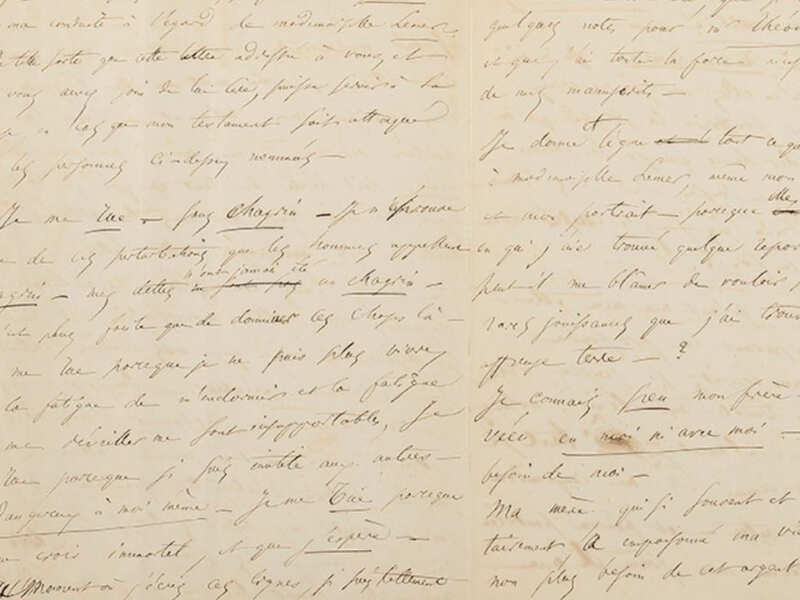 ma conduite à l'égard de mademoiselle Lemer.
telle sorte que cette lettre adressée à vous, et
vous aurez soin de lui lire, puisse servir à sa
cas que mon testament soit attaqué
les personnes ci-dessus nommées —
Je me tue — sans chagrin — Je n'éprouve
de ces perturbations que les hommes appellent
chagrin — mes dettes n'ont jamais été un chagrin —
plus facile que de dominer ces choses là —
me tue parce que je ne puis plus vivre,
la fatigue de m'endormir et la fatigue
me réveiller me sont insupportables, Je
tue parce que je suis inutile aux autres —
dangereux à moi même — Je me tue parce que
crois immortel, et que j'espère —
moment où j'écris ces lignes, je suis tellement
quelques notes pour
et que j'ai toute la force
de mes manuscrits —
Je donne et lègue tout ce que
à mademoiselle Lemer, même mon
et mon portrait — parce que elle
en qui j'aie trouvé quelque repos
peut-il me blâmer de vouloir
rares jouissances que j'ai
affreuse terre — ?
Je connais peu mon frère
vécu en moi ni avec moi —
besoin de moi —
Ma mère, qui si souvent et
a empoisonné ma vie
non plus besoin de cet argent